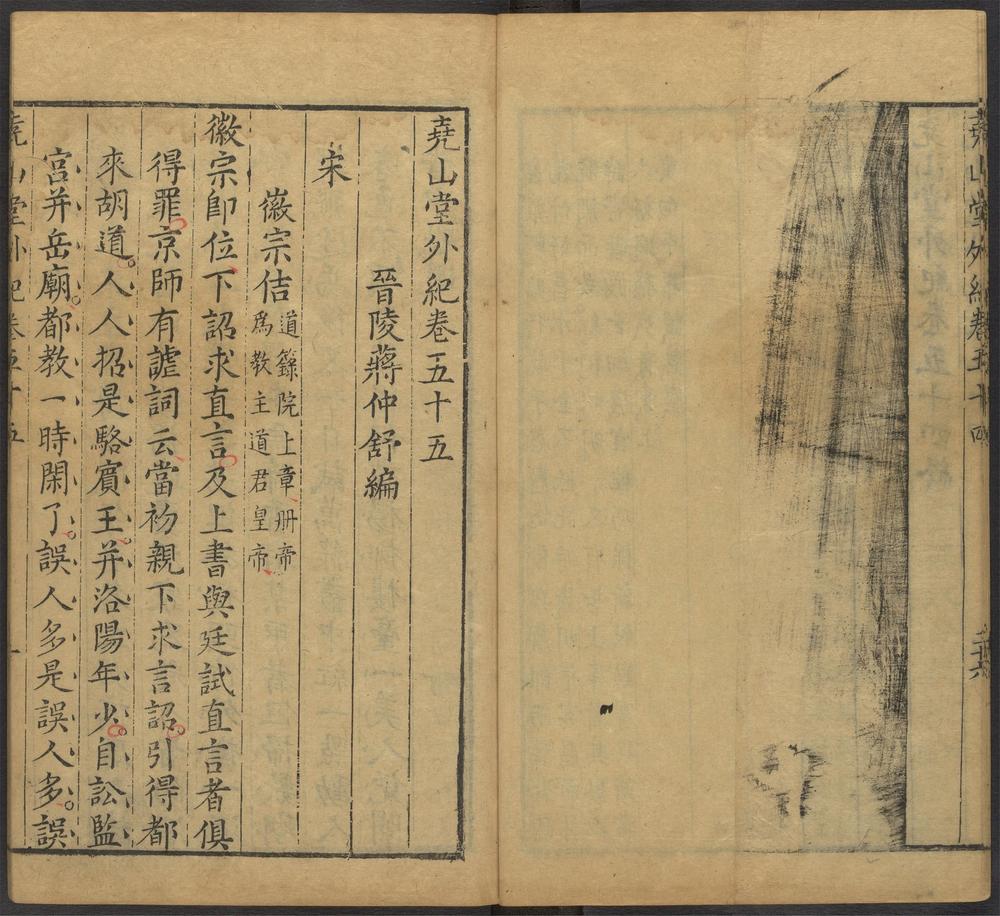 堯山堂外紀卷五十四
三十六
堯山堂外紀卷五十五
晉陵蔣仲舒編
宋
徽宗佶道籙院上章冊帝
爲教主道君皇帝
徽宗卽位下詔求直言及上書與廷試直言者俱
得罪京師有謔詞云當初親下求言詔引得都
來胡道人人招是駱賓王并洛陽年少自訟監
宮并岳廟都教一時閑了誤人多是誤人多誤
堯山堂外紀卷五十五
一